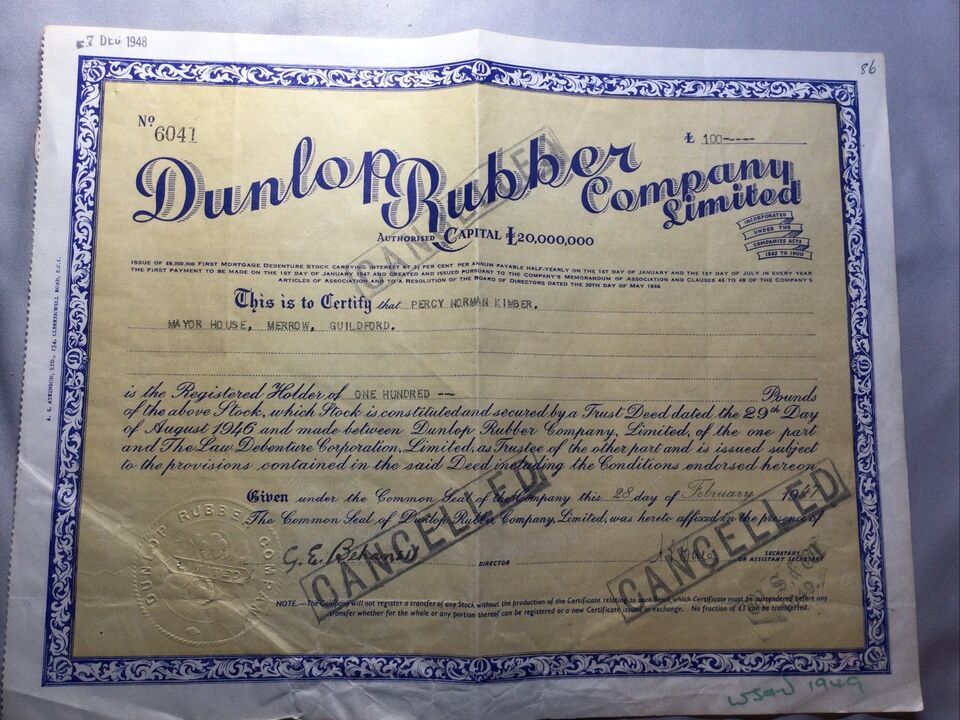 7 DEC 1948
86
No 6041
£ 100-----
Dunlop Rubber Company Limited
AUTHORISED CAPITAL £20,000,000
INCORPORATED
UNDER THE
COMPANIES ACTS
1862 TO 1900
ISSUE OF £6,000,000 FIRST MORTGAGE DEBENTURE STOCK CARRYING INTEREST AT 3½ PER CENT PER ANNUM PAYABLE HALF-YEARLY ON THE 1ST DAY OF JANUARY AND THE 1ST DAY OF JULY IN EVERY YEAR
THE FIRST PAYMENT TO BE MADE ON THE 1ST DAY OF JANUARY 1947 AND CREATED AND ISSUED PURSUANT TO THE COMPANY'S MEMORANDUM OF ASSOCIATION AND CLAUSES 45 TO 49 OF THE COMPANY'S
ARTICLES OF ASSOCIATION AND TO A RESOLUTION OF THE BOARD OF DIRECTORS DATED THE 30TH DAY OF MAY 1946
CANCELLED
This is to Certify that PERCY NORMAN KIMBER.
MAYOR HOUSE, MERROW, GUILDFORD.
is the Registered Holder of ONE HUNDRED -- Pounds
of the above Stock, which Stock is constituted and secured by a Trust Deed dated the 29th Day
of August 1946 and made between Dunlop Rubber Company, Limited, of the one part
and The Law Debenture Corporation, Limited, as Trustee of the other part and is issued subject
to the provisions contained in the said Deed including the Conditions endorsed hereon.
Given under the Common Seal of the Company this 28 day of February 1947
The Common Seal of Dunlop Rubber Company, Limited, was hereto affixed in the presence of
DIRECTOR
SECRETARY
OR ASSISTANT SECRETARY
CANCELLED
CANCELLED
DUNLOP RUBBER COMPANY
NOTE.—The Company will not register a transfer of any Stock without the production of the Certificate relating to such Stock, which Certificate must be surrendered before any
transfer whether for the whole or any portion thereof can be registered or a new Certificate issued in exchange. No fraction of £1 can be transferred.
1949
A. E. ATKINSON, LTD., 154, CLERKENWELL ROAD, E.C.1.